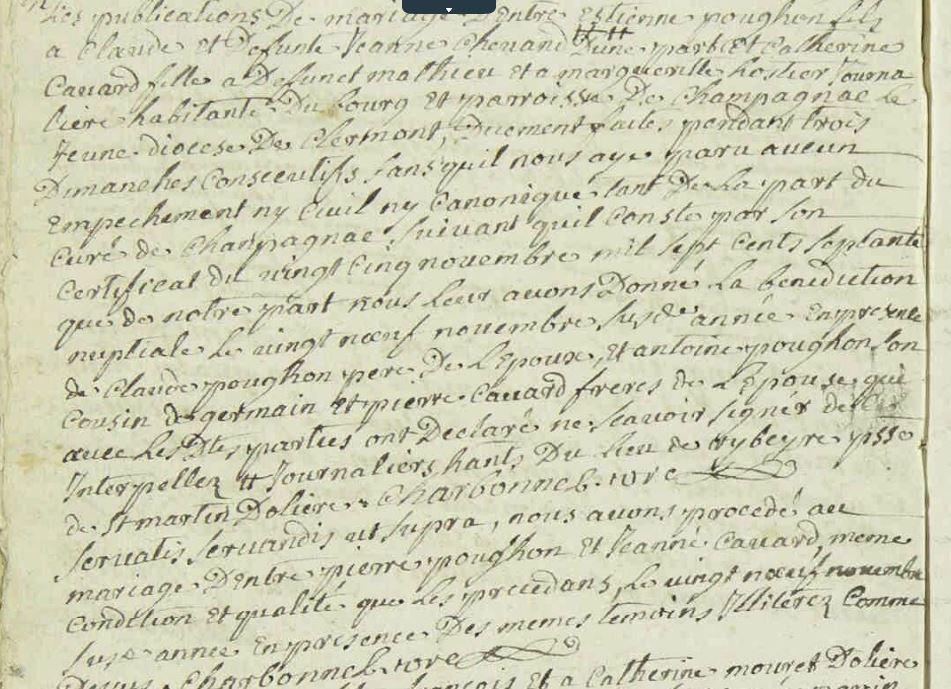 Les publications De mariage D'Entre Estienne poughon fils
a Claude et Defunte Jeanne Chenand D'une part Et Catherine
Cavard fille a Defunct mathieu Et a marguerille hostier Journa
liere habitante Du bourg Et parroisse De Champagnac Le
Jeune diocese De Clermont, Duement faites pendant trois
Dimanches Consecutifs sans quil nous aye paru aucun
Empechement ny Civil ny Canonique tant De La part du
Curé de Champagnac suivant quil Conste par son
Certificat du vingt Cinq novembre mil sept Cents septante
que de notre part nous Leur avons Donné La benediction
nuptiale Le vingt nœuf novembre susde année En presence
de Claude poughon pere De L'Epoux, Et antoine poughon son
Cousin de germain Et pierre Cavard freres de L'Epouse qui
avec Les Dtes parties ont Declaré ne scavoir signér de Ce
Interpellez tt Journaliers hants Du Lieu de psse
de St martin Dolière Charbonnel. vore
servatis servandis ut supra, nous avons procedé au
mariage D'Entre pierre poughon Et Jeanne Cavard, meme
Condition Et qualité que Les precedans, Le vingt nœuf novembre
susde année En presence Des memes temoins Illiterez Comme
Dessus. Charbonnel. vore
francois et a Catherine mouret Dolière